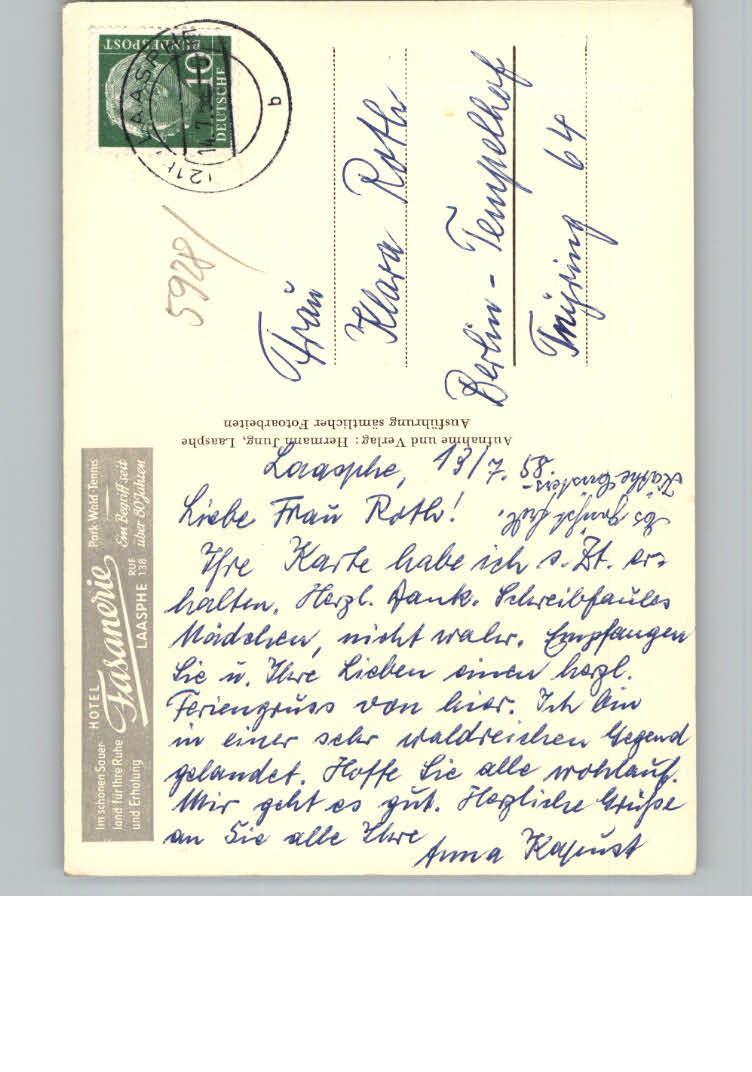 DEUTSCHE
BUNDESPOST
10
LAASPHE
14.7.58
(21b)
b
5928/
Frau
Klara Roth
Berlin - Tempelhof
Thuyring 64
Aufnahme und Verlag: Hermann Jung, Laasphe
Ausführung sämtlicher Fotoarbeiten
Im schönen Sauer-
land für Ihre Ruhe
und Erholung
HOTEL
Fasanerie
LAASPHE RUF 138
Park·Wald·Tennis
Ein Begriff seit
über 80 Jahren
Laasphe, 13/7. 58.
Liebe Frau Roth!
Ihre Karte habe ich s. Zt. er-
halten. Herzl. Dank. Schreibfaules
Mädchen, nicht wahr. Empfangen
Sie u. Ihre Lieben einen herzl.
Feriengruss von hier. Ich bin
in einer sehr waldreichen Gegend
gelandet. Hoffe Sie alle wohlauf.
Mir geht es gut. Herzliche Grüße
an Sie alle Ihre
Anna Kapust
Es